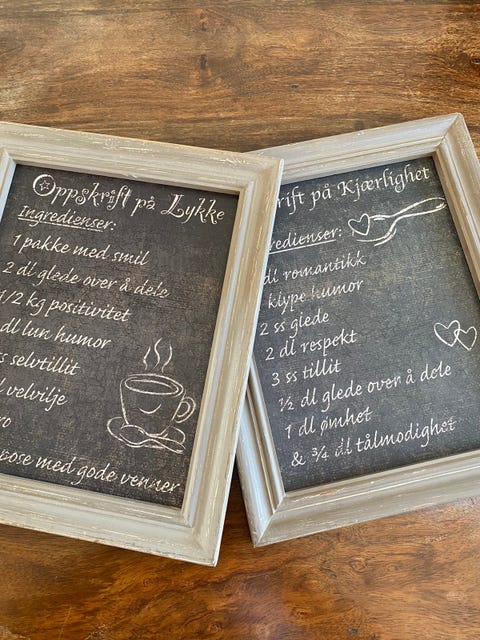 Oppskrift på Lykke
Ingredienser:
1 pakke med smil
2 dl glede over å dele
1/2 kg positivitet
dl lun humor
ss selvtillit
velvilje
ro
med gode venner
rift på Kjærlighet
redienser:
dl romantikk
klype humor
2 ss glede
2 dl respekt
3 ss tillit
½ dl glede over å dele
1 dl ømhet
& ¾ dl tålmodighet